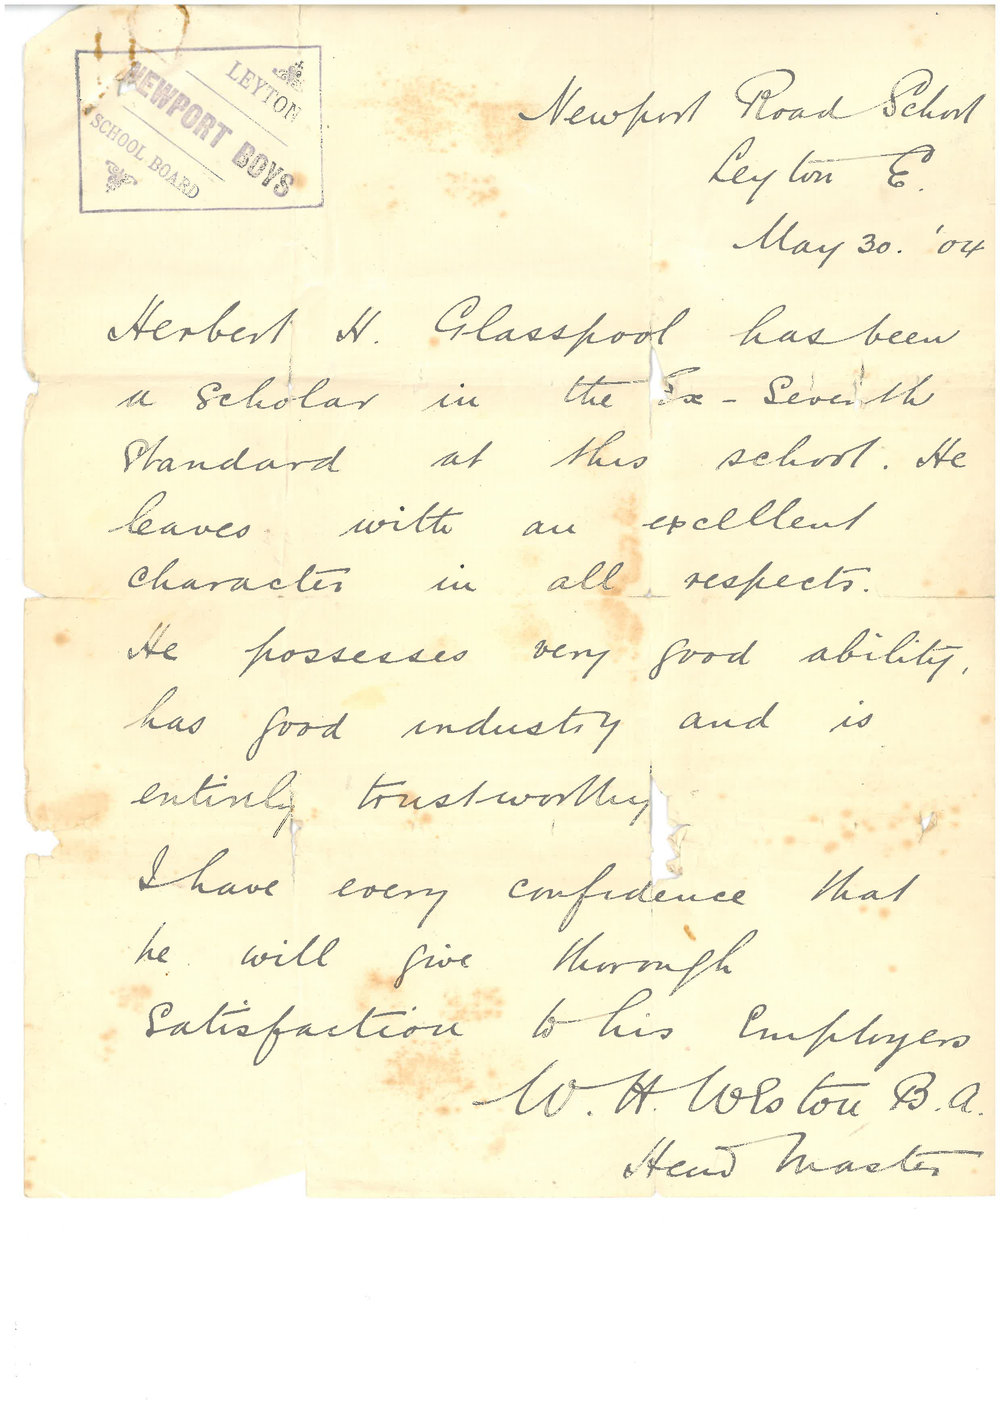 LEYTON
NEWPORT BOYS
SCHOOL BOARD
Newport Road School
Leyton E.
May 30. '04
Herbert H. Glasspool has been
a scholar in the Ex-Seventh
Standard at this school. He
leaves with an excellent
character in all respects.
He possesses very good ability,
has good industry and is
entirely trustworthy
I have every confidence that
he will give thorough
satisfaction to his Employers
W. H. Weston B.A.
Head Master